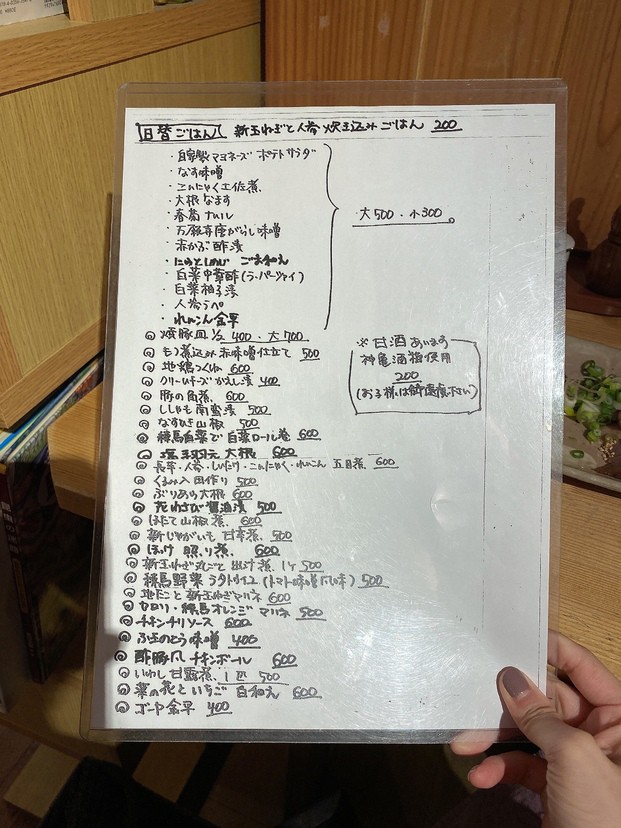 日替ごはん 新玉ねぎと人参 炊き込みごはん 200
・自家製マヨネーズ ポテトサラダ
・なす味噌
・こんにゃく土佐煮
・大根なます
・春菊ナムル
・万願寺唐がらし味噌
・赤かぶ酢漬
ごま和え
・白菜中華酢(ラーパーツァイ)
・白菜柚子漬
・人参ラペ
・れんこん金平
大500・小300。
◎ 焼豚皿 1/2 400・大700
◎ もつ煮込み 赤味噌仕立て 500
◎ 地鶏つくね 600
◎ クリームチーズ かえし漬 400
◎ 豚の角煮 600
◎ ししゃも南蛮漬 500
◎ なすねぎ山椒 500
◎ 練馬白菜で 白菜ロール巻 600
◎ 大根 600
◎ 長芋・人参・しいたけ・こんにゃく・れんこん 五目煮 600
◎ くるみ入 田作り 500
◎ ぶりあら大根 600
◎ 花わさび醤油漬 500
◎ ほたて山椒煮 600
◎ 新じゃがいも 甘辛煮 500
◎ ほっけ 照り煮 600
◎ 新玉ねぎ丸ごと 出汁煮 1ケ 500
◎ 練馬野菜 ラタトゥイユ (トマト味噌風味) 500
◎ 地だこと 新玉ねぎマリネ 600
◎ セロリ・練馬オレンジ マリネ 500
◎ チキンチリソース 600
◎ ふきのとう味噌 400
◎ 酢豚風 チキンボール 600
◎ いわし 甘露煮 1匹 500
◎ 菜の花と いちご 白和え 600
◎ ゴーヤ金平 400
※ 甘酒あります
神亀酒粕使用
200
(お子様は御遠慮下さい)